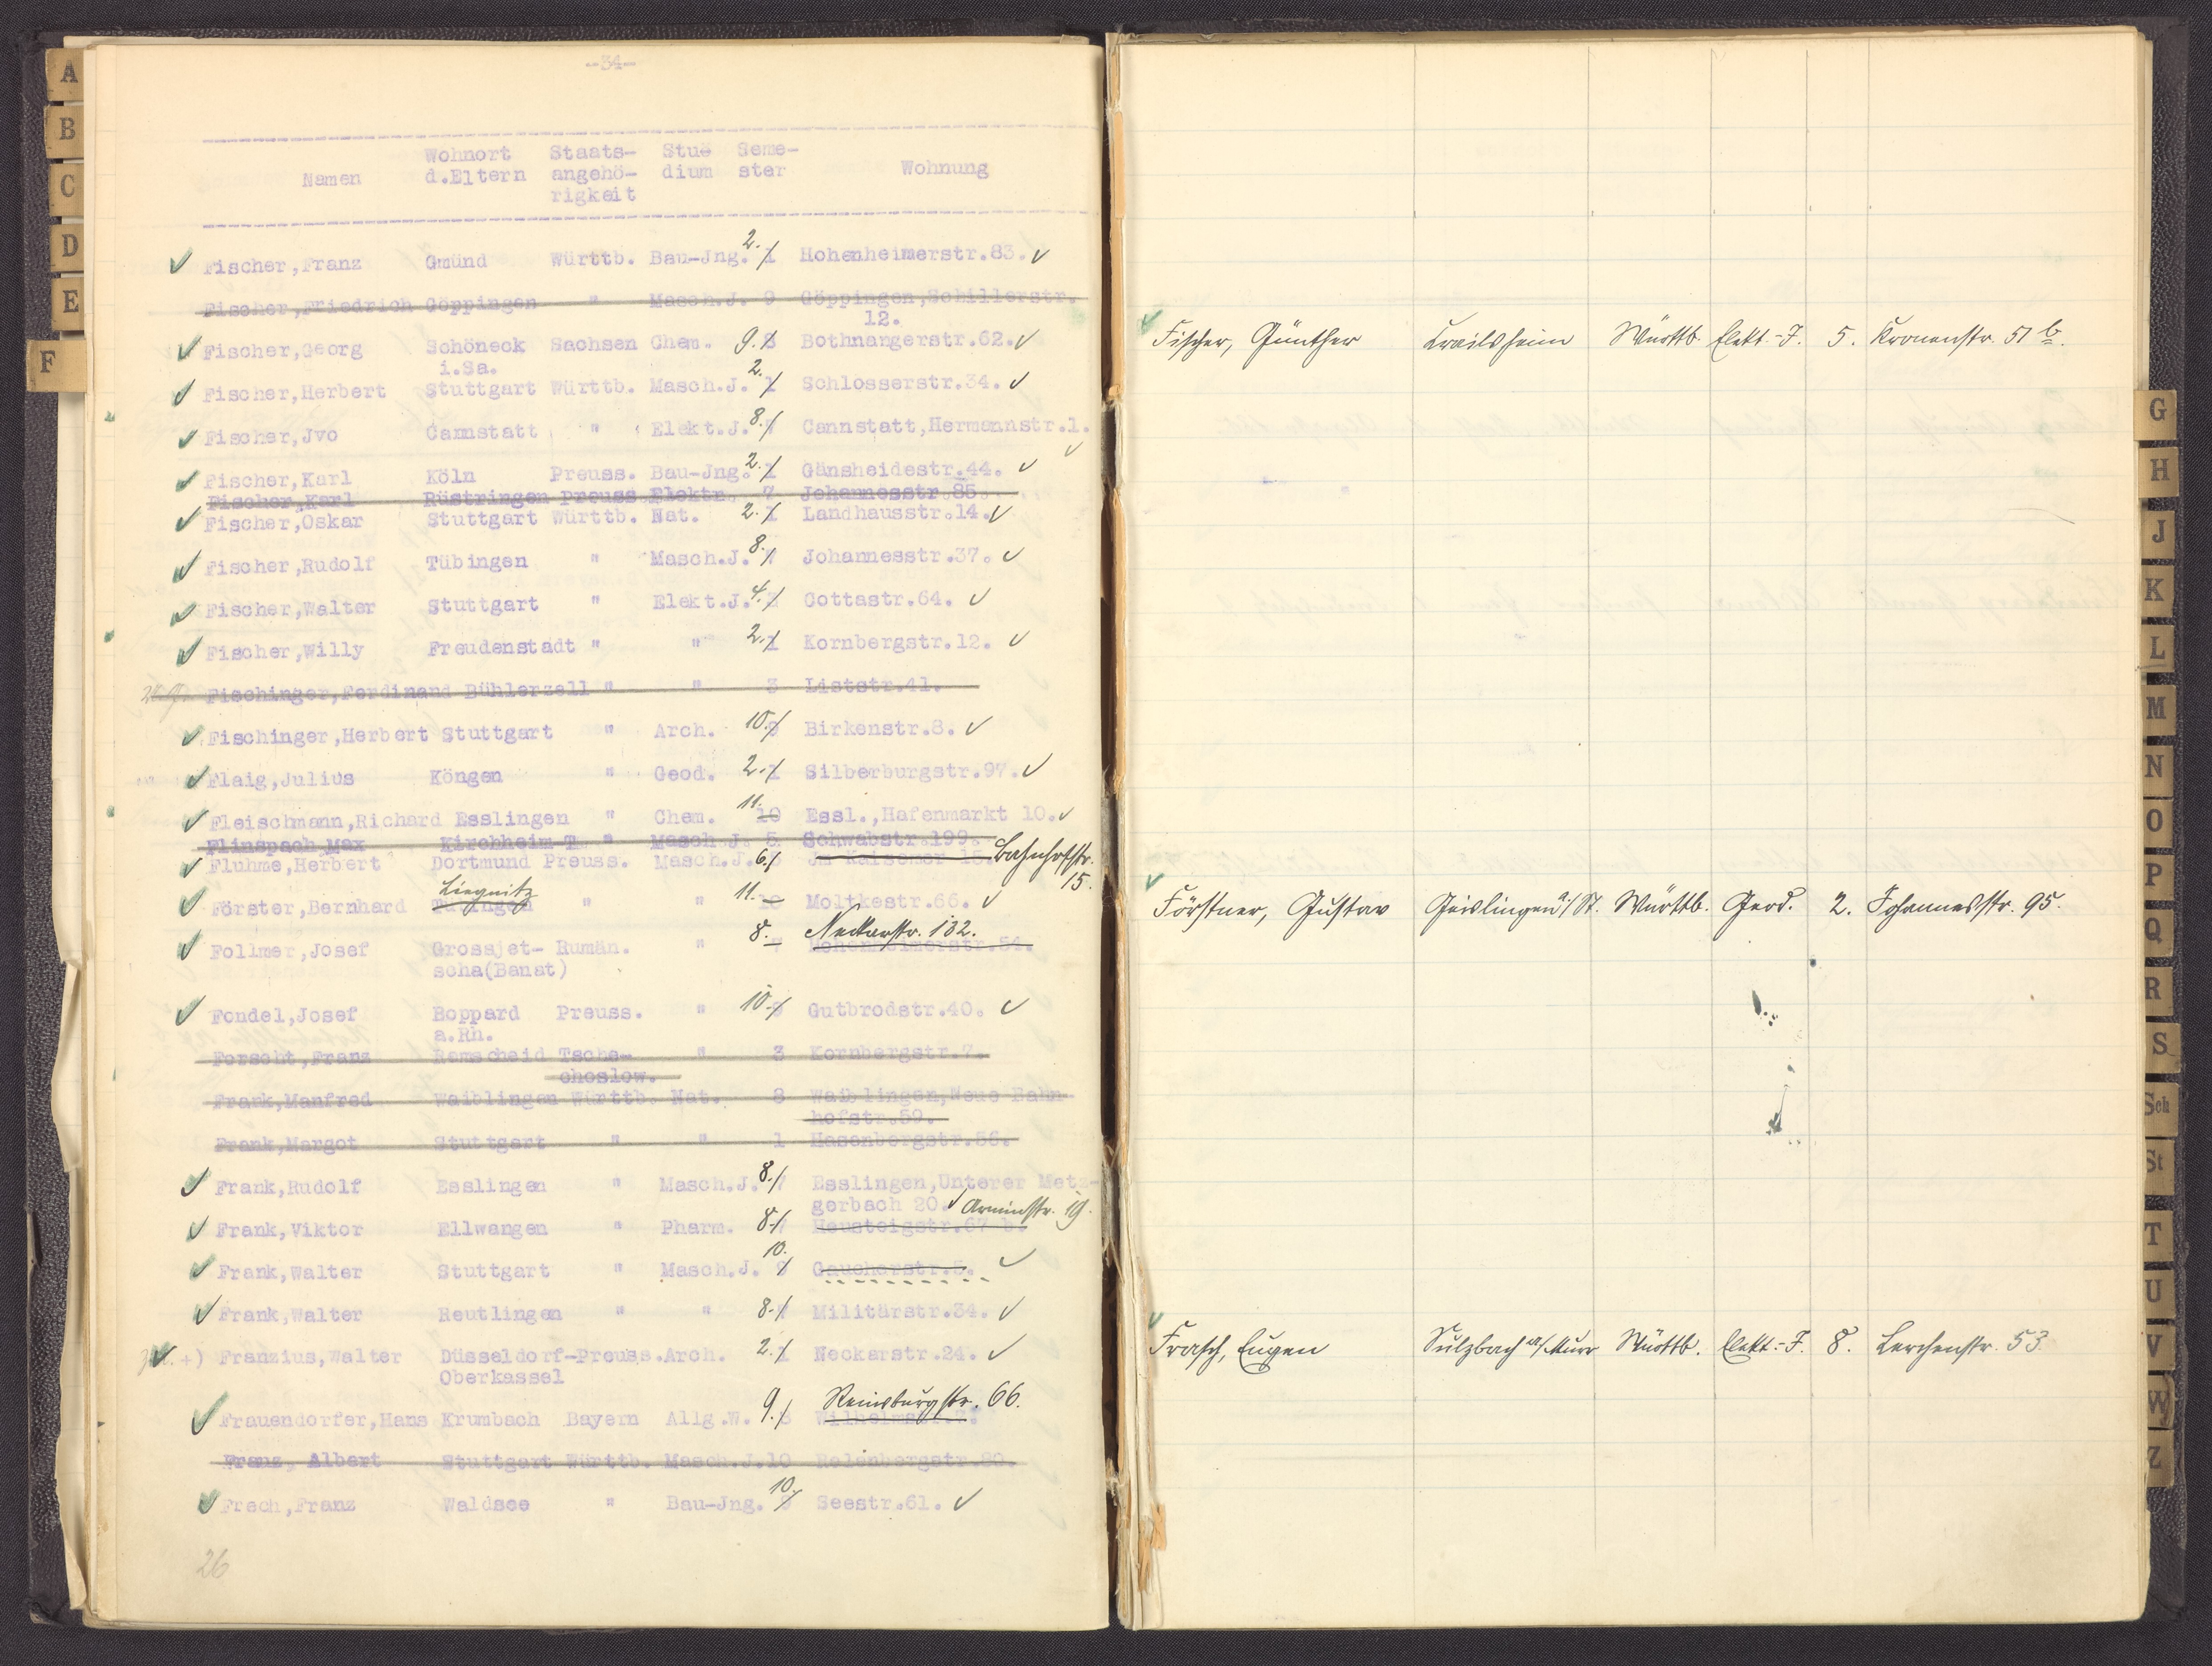 A
B
C
D
E
F
-34-
Wohnort Staats- Stud Seme-
Namen d.Eltern angehö- dium ster Wohnung
rigkeit
Fischer,Franz Gmünd Württb. Bau-Jng. 2. 1 Hohenheimerstr.83.
Fischer,Friedrich Göppingen " Masch.J. 9 Göppingen,Schillerstr.
12.
Fischer,Georg Schöneck Sachsen Chem. 9. 8 Bothnangerstr.62.
i.Sa.
Fischer,Herbert Stuttgart Württb. Masch.J. 2. 1 Schlosserstr.34.
Fischer,Jvo Cannstatt " Elekt.J. 8. 7 Cannstatt,Hermannstr.1.
Fischer,Karl Köln Preuss. Bau-Jng. 2. 1 Gänsheidestr.44.
Fischer,Karl Rüstringen Preuss Elektr. 7 Johannesstr.85.
Fischer,Oskar Stuttgart Württb. Nat. 2. 1 Landhausstr.14.
Fischer,Rudolf Tübingen " Masch.J. 8. 7 Johannesstr.37.
Fischer,Walter Stuttgart " Elekt.J. 4. 3 Cottastr.64.
Fischer,Willy Freudenstadt " " 2. 1 Kornbergstr.12.
Fischinger,Ferdinand Bühlerzell " " 3 Liststr.41.
Fischinger,Herbert Stuttgart " Arch. 10. 9 Birkenstr.8.
Flaig,Julius Köngen " Geod. 2. 1 Silberburgstr.97.
Fleischmann,Richard Esslingen " Chem. 11. 10 Essl.,Hafenmarkt 10.
Flinspach Max Kirchheim T. " Masch.J. 5 Schwabstr.199.
Fluhme,Herbert Dortmund Preuss. Masch.J. 6. Jm Kaisemer 15. Bahnhofstr.
15.
Förster,Bernhard Liegnitz " " 11. 10 Moltkestr.66.
Follmer,Josef Grossjet- Rumän. " 8. 7 Neckarstr. 132. Hohenheimerstr.54.
scha(Banat)
Fondel,Josef Boppard Preuss. " 10. 9 Gutbrodstr.40.
a.Rh.
Forscht,Franz Remscheid Tsche- " 3 Kornbergstr.7.
choslow.
Frank,Manfred Waiblingen Württb. Nat. 8 Waiblingen,Neue Bahn
hofstr.59.
Frank,Margot Stuttgart " " 1 Hasenbergstr.56.
Frank,Rudolf Esslingen " Masch.J. 8. 7 Esslingen,Unterer Metz-
gerbach 20. Arminstr. 19.
Frank,Viktor Ellwangen " Pharm. 8. 7 Heusteigstr.67 b.
Frank,Walter Stuttgart " Masch.J. 10. 9 Gaucherstr.5.
Frank,Walter Reutlingen " " 8. 7 Militärstr.34.
+) Franzius,Walter Düsseldorf-Preuss.Arch. 2. 1 Neckarstr.24.
Oberkassel
Reinsburgstr. 66.
Frauendorfer,Hans Krumbach Bayern Allg.W. 9. 8 Wilhelmstr.
Franz, Albert Stuttgart Württb. Masch.J.10 Relenbergstr.80.
Frech,Franz Waldsee " Bau-Jng. 10. 9 Seestr.61.
26
Fischer, Günther Crailsheim Württb. Elekt.-J. 5. Kronenstr. 51 b.
Förstner, Gustav Geislingen a/St. Württb. Geod. 2. Johannesstr. 95.
Frasch, Eugen Sulzbach a/Murr Württb. Elekt.-J. 8. Lerchenstr. 53.
G
H
J
K
L
M
N
O
P
Q
R
S
Sch
St
T
U
V
W
Z